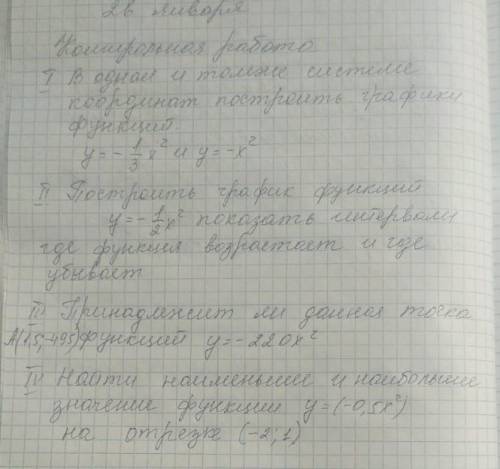 26 января
Контрольная работа
I В одной и тойже системе
координат построить графики
функций
y = -1/3 x² и y = -x²
II Построить график функций
y = -1/2 x² показать интервалы
где функция возрастает и где
убывает
III Принадлежит ли данная точка
A(1,5;-495) функций y = -220x²
IV Найти наименьшее и наибольшее
значение функции y = (-0,5x²)
на отрезке (-2; 1)